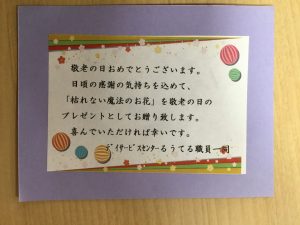 敬老の日おめでとうございます。
日頃の感謝の気持ちを込めて、
「枯れない魔法のお花」を敬老の日の
プレゼントとしてお贈り致します。
喜んでいただければ幸いです。
デイサービスセンターるうてる職員一同